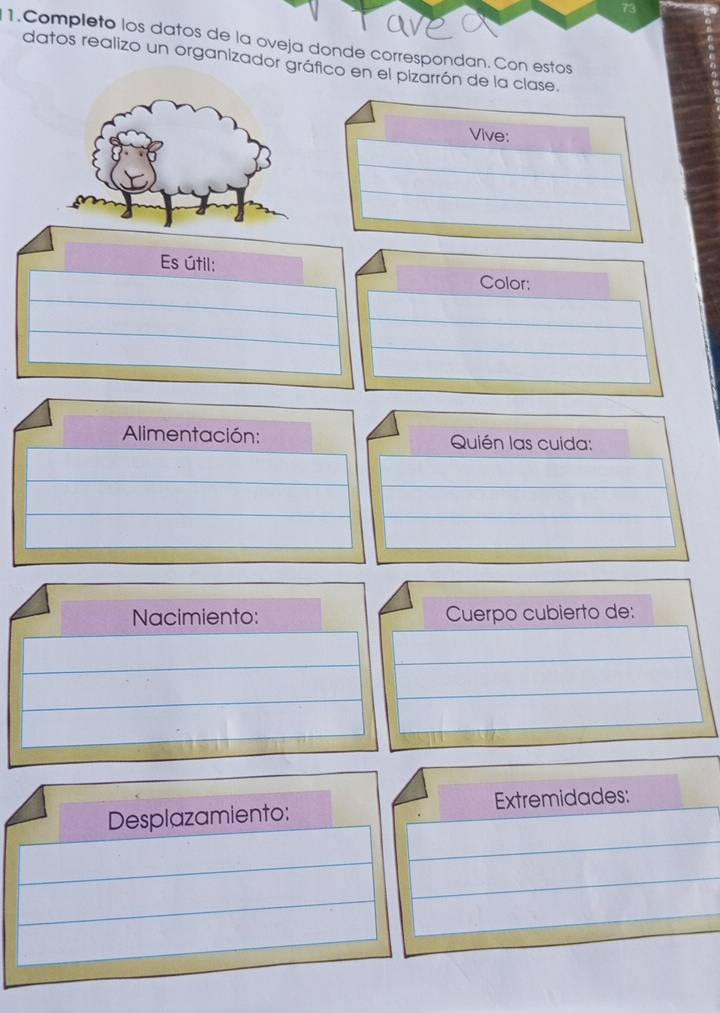 73
Tarea
11. Completo los datos de la oveja donde correspondan. Con estos
datos realizo un organizador gráfico en el pizarrón de la clase.
Vive:
Es útil:
Color:
Alimentación:
Quién las cuida:
Nacimiento:
Cuerpo cubierto de:
Desplazamiento:
Extremidades: